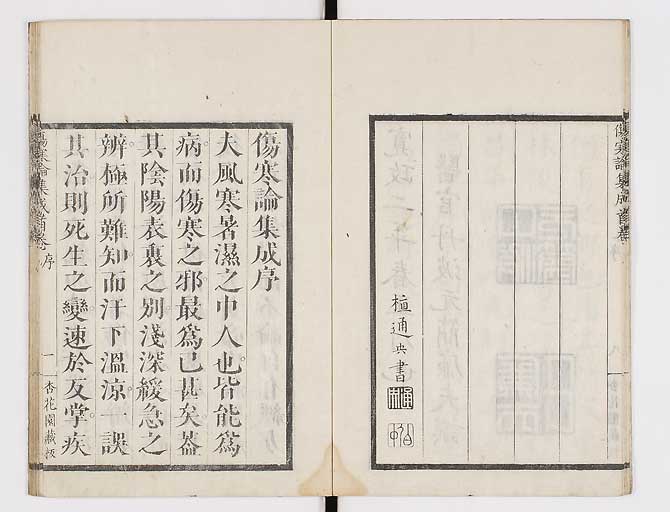 植通典書
傷寒論集成首卷
傷寒論集成序
夫風寒暑濕之中人也皆能為
病而傷寒之邪最為已甚矣蓋
其陰陽表裏之別淺深緩急之
辨極所難知而汗下溫涼一誤
其治則死生之變速於反掌疾
傷寒論集成首卷 序 一 杏花園藏板